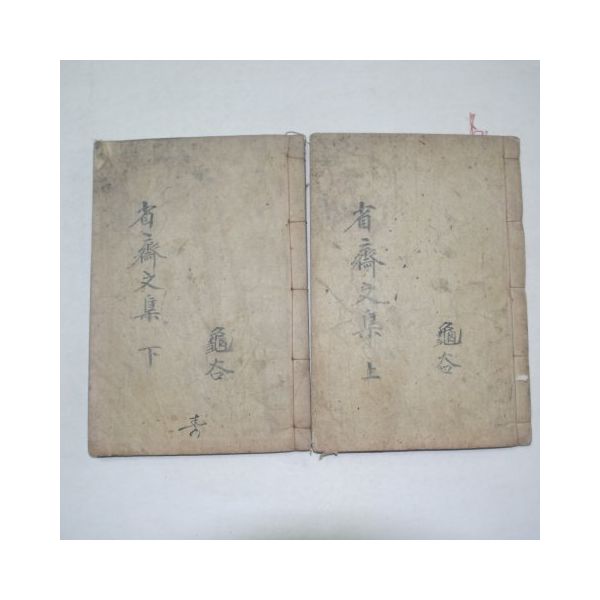 龜谷
省齋文集 上
龜谷
省齋文集 下